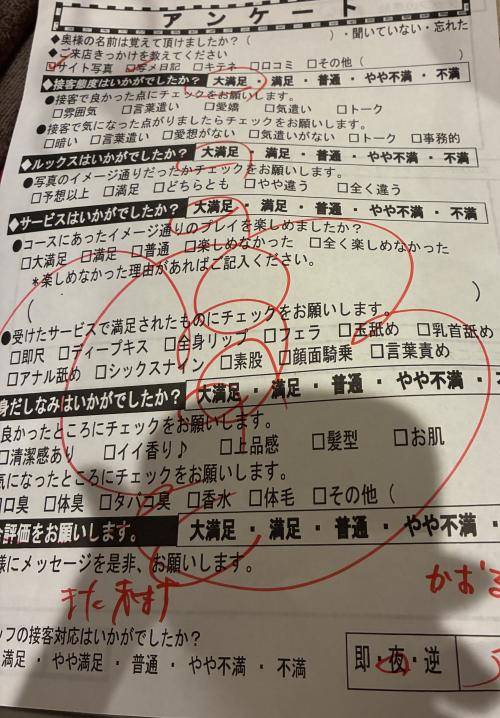 アンケート
◆奥様の名前は覚えて頂けましたか?( )・聞いていない・忘れた
◆ご来店きっかけを教えてください
□サイト写真 □写メ日記 □キテネ □口コミ □その他( )
◆接客態度はいかがでしたか? 大満足・満足・普通・やや不満・不満
●接客で良かった点にチェックをお願いします。
□雰囲気 □言葉遣い □愛嬌 □気遣い □トーク
●接客で気になった点がありましたらチェックをお願いします。
□暗い □言葉遣い □愛想がない □気遣いがない □トーク □事務的
◆ルックスはいかがでしたか? 大満足・満足・普通・やや不満・不満
●写真のイメージ通りだったかチェックをお願いします。
□予想以上 □満足 □どちらとも □やや違う □全く違う
◆サービスはいかがでしたか? 大満足・満足・普通・やや不満・不満
●コースにあったイメージ通りのプレイを楽しめましたか?
□大満足 □満足 □普通 □楽しめなかった □全く楽しめなかった
*楽しめなかった理由があればご記入ください。
( )
●受けたサービスで満足されたものにチェックをお願いします。
□即尺 □ディープキス □全身リップ □フェラ □玉舐め □乳首舐め
□アナル舐め □シックスナイン □素股 □顔面騎乗 □言葉責め
身だしなみはいかがでしたか? 大満足・満足・普通・やや不満・不
良かったところにチェックをお願いします。
□清潔感あり □イイ香り♪ □上品感 □髪型 □お肌
気になったところにチェックをお願いします。
□口臭 □体臭 □タバコ臭 □香水 □体毛 □その他(
評価をお願いします。 大満足・満足・普通・やや不満
様にメッセージを是非、お願いします。
また来ます
かおる
ッフの接客対応はいかがでしたか?
満足・やや満足・普通・やや不満・不満
即・夜・逆